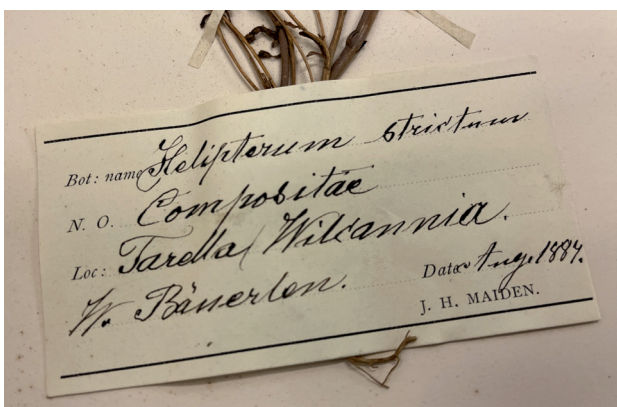 Bot: name Helipterum strictum
N. O. Compositae
Loc: Tarella, Wilcannia.
W. Bäuerlen. Date Aug. 1887.
J. H. MAIDEN.